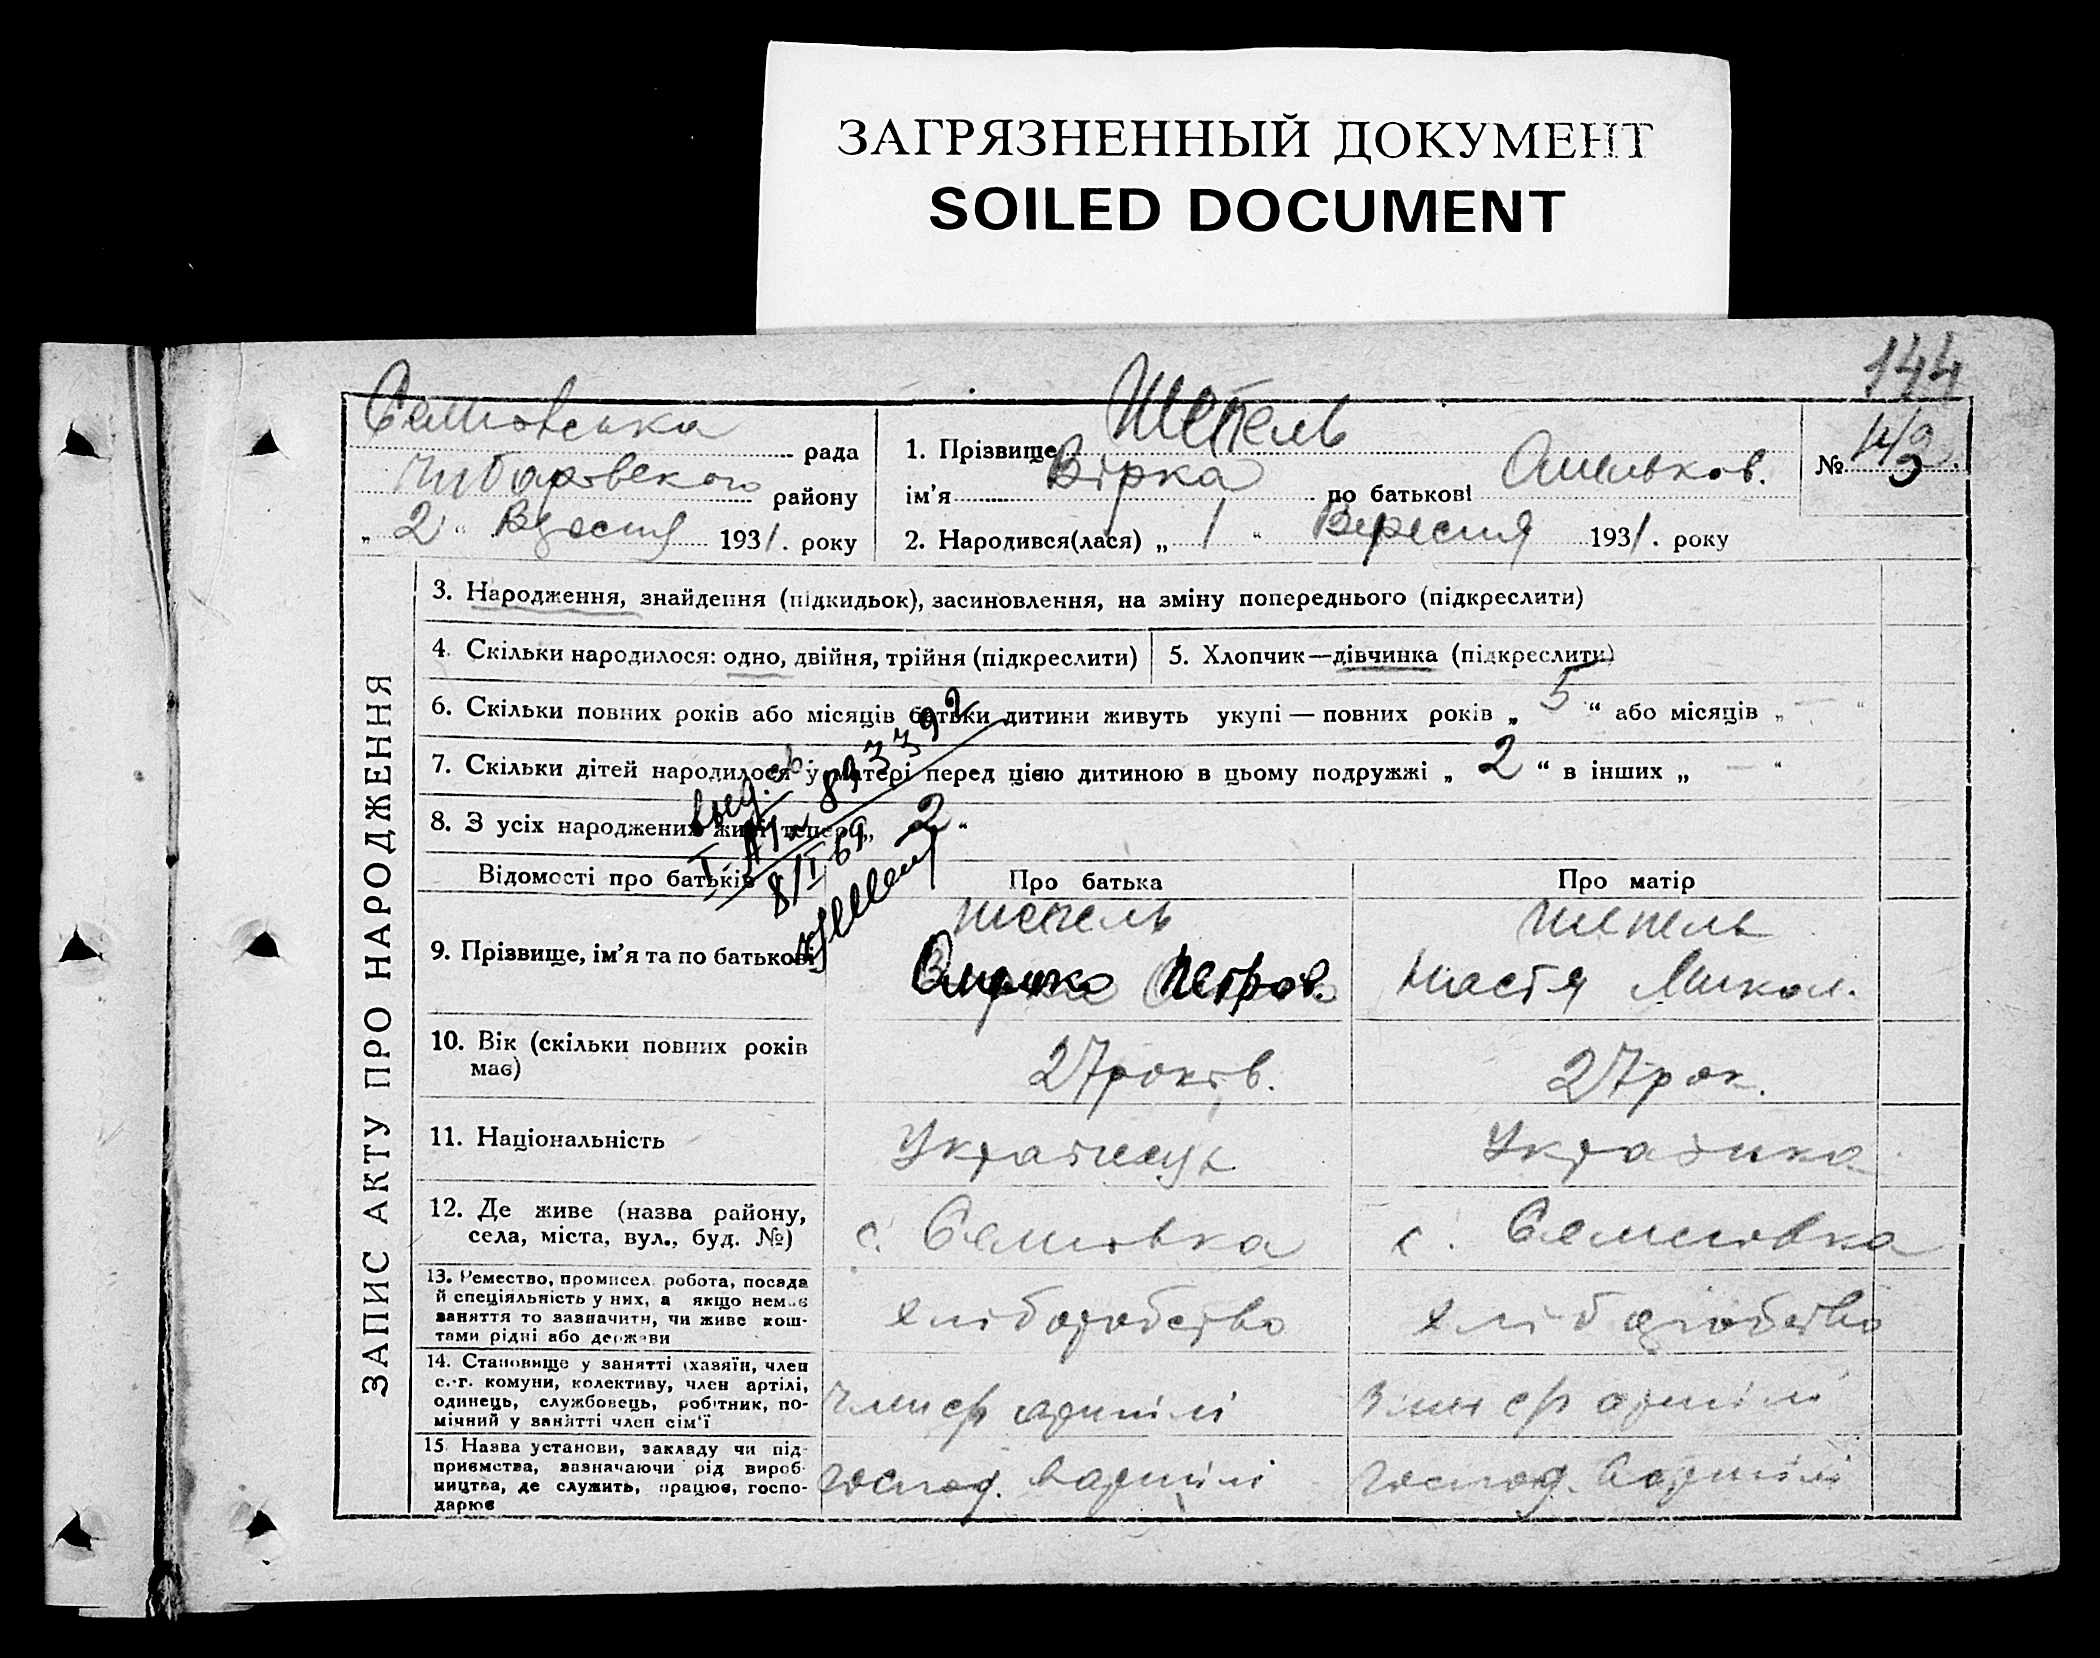 ЗАГРЯЗНЕННЫЙ ДОКУМЕНТ
SOILED DOCUMENT
144
Семковська рада
Чубарівского району
„ 2 “ Вересня 1931. року
1. Прізвище Шепель
ім’я Вірка по батькові Омельков.
2. Народився(лася) „ 1 “ Вересня 1931. року
№
ЗАПИС АКТУ ПРО НАРОДЖЕННЯ
3. Народження, знайдення (підкидьок), засиновлення, на зміну попереднього (підкреслити)
4. Скільки народилося: одно, двійня, трійня (підкреслити)
5. Хлопчик—дівчинка (підкреслити)
6. Скільки повних років або місяців батьки дитини живуть укупі — повних років „ 5 “ або місяців „ — “
7. Скільки дітей народилося у матері перед цією дитиною в цьому подружжі „ 2 “ в інших „ — “
8. З усіх народжених живі тепер „ 2 “
8/I 69
Відомості про батьків
Про батька
Про матір
9. Прізвище, ім’я та по батькові
Шепель
Петров.
Шепель
Настя Микол.
10. Вік (скільки повних років має)
27 років.
27 рок.
11. Національність
Українець
Українка
12. Де живе (назва району,
села, міста, вул., буд. №)
с. Семновка
с. Семеновка
13. Ремество, промисел, робота, посада
й спеціяльність у них, а якщо немає
заняття то зазначити, чи живе кош-
тами рідні або держави
хліборобство
хліборобство
14. Становище у занятті (хазяїн, член
с.-г. комуни, колективу, член артілі,
одинець, службовець, робітник, по-
мічний у занятті член сім’ї
член с/г артілі
член с/г артілі
15. Назва установи, закладу чи під-
приємства, зазначаючи рід вироб-
ництва, де служить, працює, госпо-
дарює
господ. в артілі
господ. в артілі